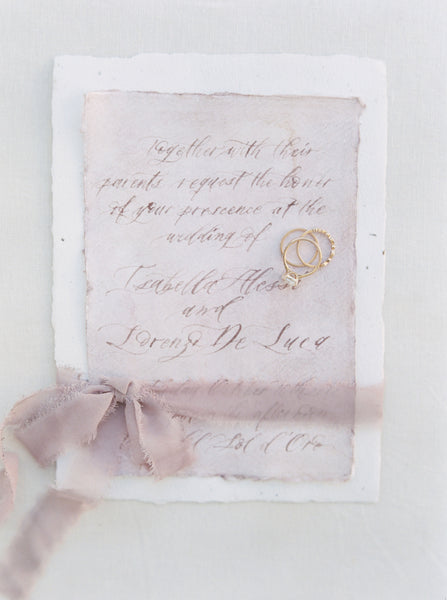 Together with their
parents request the honor
of your prescence at the
wedding of
Isabella Alessi
and
Lorenzo De Luca
afternoon
d'Oro